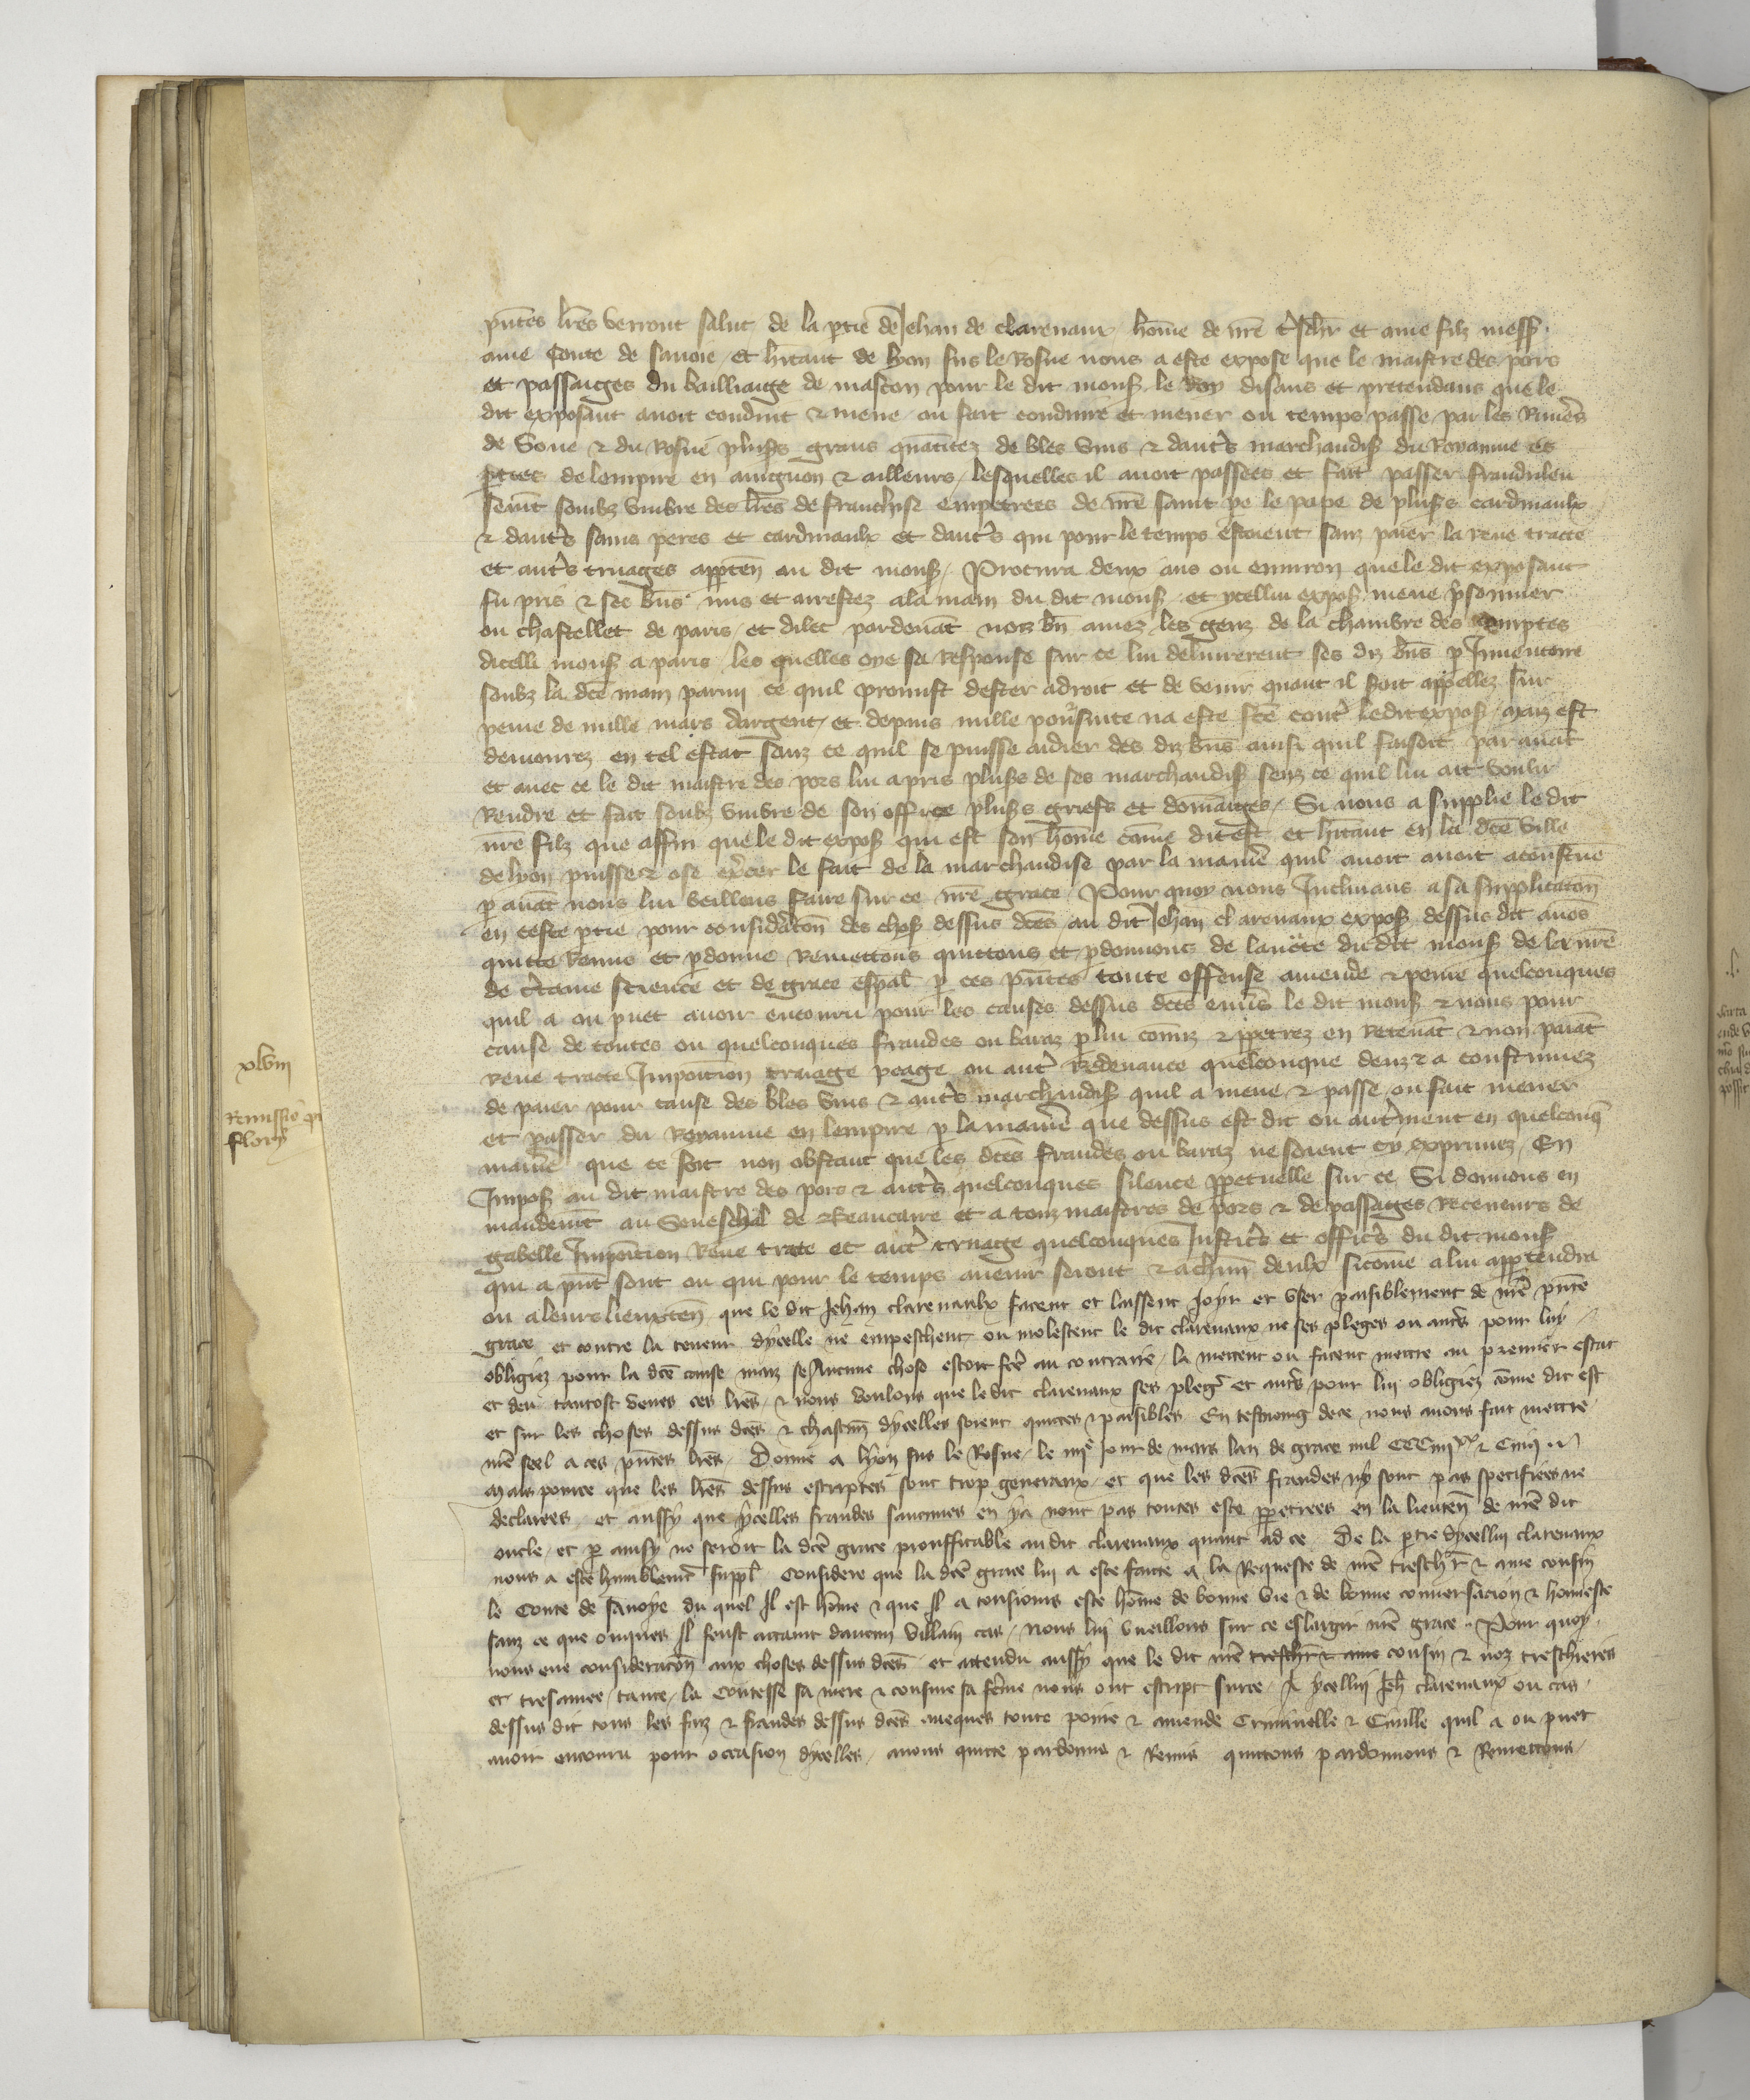 pñtes lr̃es verront salut de la p̃tie de Jehan de clarenaux / hom̃e de nr̃e tr̃schr̃ et ame filz mess̃.
ame Conte de sauoie / et hĩtant de lyon sus le Rosne nous a este expose que le maistre des pors
et passaiges du bailliaige de mascon pour le dit mons̃. le Roy disans et pretendans que le
dit exposant auoit conduit & mene / ou fait conduire et mener ou temps passe par les Riuer̃s
de Sone & du Rosne plus̃s grans quãtitez de bles vins & daut̃s marchandis̃ du Royaume es
p̃ties de lempire en auignon & ailleurs / lesquelles il auoit passees et fait passer fraudule
sem̃t soubz vmbre des lr̃es de franchise empetrees de nr̃e saint pe le pape de plus̃s cardinaulx
& daut̃s sains peres et cardinaulx et daut̃s qui pour le temps estoient sanz paier la reue traite
et aut̃s truages apparten̄ au dit mons̃. / Procura deux ans ou enuiron que le dit exposant
fu pris & ses bñs mis et arrestez a la main du dit mons̃. et ycellui expos̃. mene p̃sonnier
ou chastellet de paris / et dilec pardeuãt noz bñ amez les genz de la chambre des comptes
dicelli mons̃ a paris les quelles oye sa Response sur ce lui deliurerent ses dz bñs p Inuentoire
soubz la dc̃e main parmi ce quil promist dester adroit et de venir quant il soit appellez sur
peine de mille mars dargent / et depuis nulle pour̃suite na este fc̃e cont̃ ledit expos̃ / maiz est
demourez en tel estat sanz ce quil se puisse aidier des dz bñs ainsi quil faisoit par auãt
et auec ce le dit maistre des pors lui a pris plus̃s de ses marchandis̃ senz ce quil lui ait voulu
Rendre et fait soubz vmbre de son office plus̃s griefs et dom̃aiges / Si nous a supplie le dit
nr̃e filz que affin que le dit expos̃ qui est son hom̃e com̃e dit est et hĩtant en la dc̃e ville
de lyon puisse & ose ex̃cer le fait de la marchandise par la manie᷑ quil auoit auoit acoustue
p auãt nous lui veillons faire sur ce nr̃e grace / Pour quoy nous Inclinans a sa supplicatõn
en ceste p̃tie pour considẽratõn des chos̃ dessus dc̃es au dit Jehan clarenaux expos̃ dessus dit auõs
quitte Remis et p̃donne Remettons quittons et p̃donnons de lauc̃te du dit mons̃ de la nr̃e
de c̃taine science et de grace esp̃al p ces pñtes toute offense amende & peine quelconques
quil a ou puet auoir encouru pour les causes dessus dc̃es enũs le dit mons̃ & nous pour
cause de toutes ou quelconques fraudes ou baraz p lui com̃iz & ppetrez en Retenãt & non paiãt
Reue traite Imposition truage peage ou aut̃ Redeuance quelconque deuz & a coustumez
de paier pour cause des bles vins & aut̃s marchandis̃ quil a mene & passe / ou fait mener
et passer du Royaume en lempire p la manie᷑ que dessus est dit ou aut̃ment en quelconq̃
manie᷑ que ce soit non obstant que les dc̃es fraudes ou baraz ne soient cy exprimez / En
Impos̃ au dit maistre des pors & aut̃s quelconques silence ppetuelle sur ce Si donnons en
mandem̃t au Seneschal de Beaucaire et a touz maistres de pors & de passages Receueurs de
gabelle Imposition Reue traite et aut̃ truage quelconques Justic̃s et offic̃s du dit mons̃
qui a pñt sont ou qui pour le temps auenir seront & a chũn deulx sicom̃e a lui apptendra
ou a leurs lieuxten̄ que le dit Jehan clarenaulx facent et laissent Joyr et vser paisiblement de nr̃e pñte
grace et contre la teneur dycelle ne empeschent ou molestent le dit clarenaux ne ses pleges ou aut̃s pour luy
obligiez pour la dc̃e cause maiz se Aucune chose estoit fc̃e au contraire / la mettent ou facent mettre au premier estat
et deu tantost veues ces lr̃es / & nous voulons que le dit clarenaux ses pleg̃ et aut̃s pour lui obligiez com̃e dit est
et sur les choses dessus dc̃es & chascũn dycelles soient quittes & paisibles En tesmoing de ce nous auons fait mettre
nr̃e seel a ces pñtes lr̃es / Donne a lyon sus le Rosne / le iijᵉ Jour de mars lan de grace mil CCC iiijˣˣ & Cinq
Mais pource que les lr̃es dessus escriptes sont trop generaux / et que les dc̃es fraudes ny sont pas specifiees ne
declarees / et aussy que ycelles fraudes saucunes en ya nont pas toutes este ppetrees en la lieuten̄ de nr̃e dit
oncle / et p ainsy ne seroit la dc̃e grace prouffitable au dit clarenaux quant ad ce De la p̃tie dycellui clarenaux
nous a este humblem̃t suppl̃ Considere que la dc̃e grace lui a este faicte a la Requeste de nr̃e treschr̃ & ame cousin
le Conte de sauoye du quel Il est hom̃e & que Il a tousiours este hom̃e de bonne vie & de bonne conuersacion & honneste
sanz ce que onques Il feust attaint daucun villain cas / Nous lui vueillons sur ce eslargir nr̃e grace Pour quoy
nous eue consideratõn aux choses dessus dc̃es et attendu aussy que le dit nr̃e treschr̃ & ame cousin & noz treschieres
et tresamee / tante / la Contesse sa mere & cousine sa fem̃e nous ont escript surce / A ycellui Jeh̃ clarenaux ou cas
dessus dit tous les faiz & fraudes dessus dc̃es auecques toute peine & amende Criminelle & Ciuille quil a ou puet
auoir encouru pour occasion dycelles / auons quitte pardonne & Remis quittons pardonnons & Remettons
xlviij
Remissio
flory